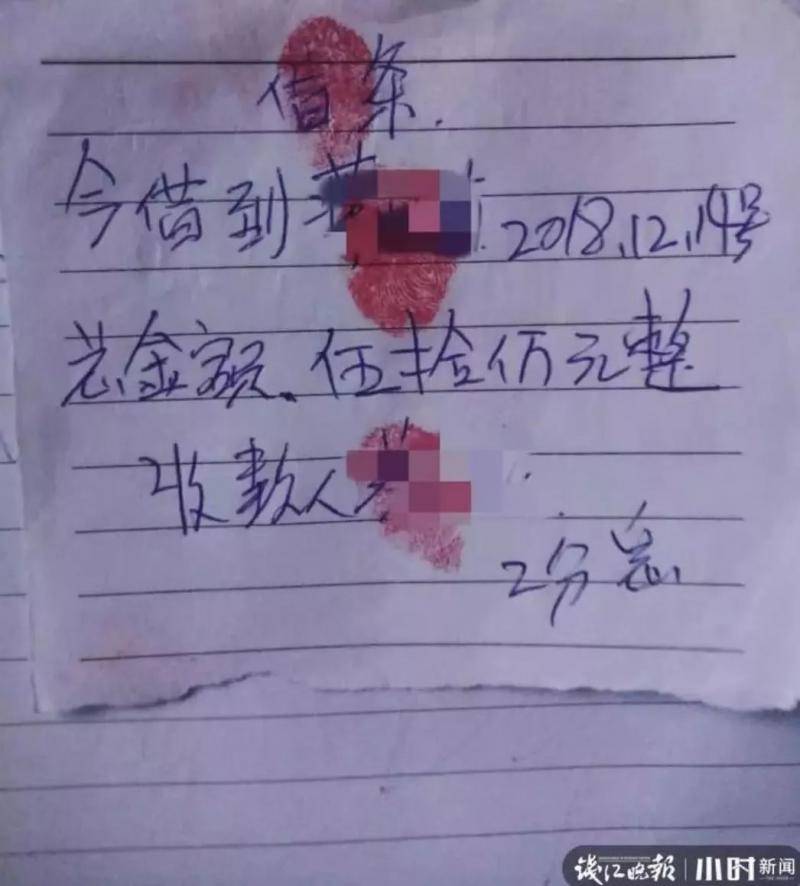 借条.
今借到 2018.12.14号
总金额、伍拾万元整
收款人
2分息
钱江晚报 | 小时新闻